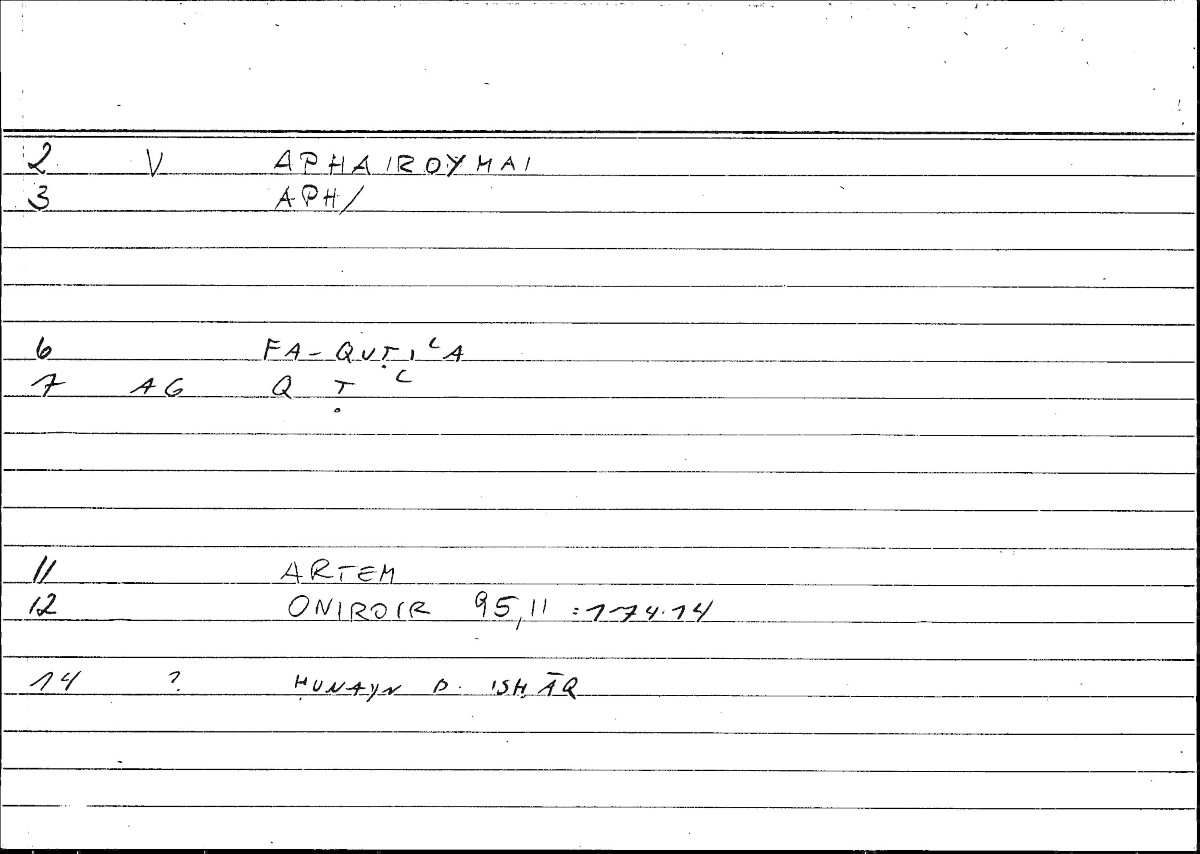 2 V APHAIROYMAI
3 APH/
6 FA-QUṬIʿA
7 AG Q Ṭ ʿ
11 ARTEM
12 ONIROIR 95,11 :174.14
14 ? ḤUNAYN B. ISḤĀQ